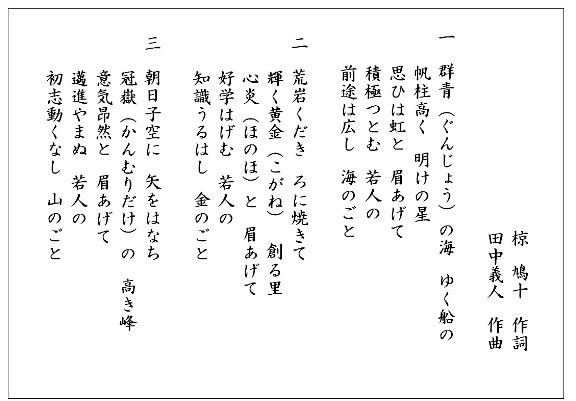 椋　鳩十　作詞
田中義人　作曲
一　群青（ぐんじょう）の海　ゆく船の
帆柱高く　明けの星
思ひは虹と　眉あげて
積極つとむ　若人の
前途は広し　海のごと
二　荒岩くだき　ろに焼きて
輝く黄金（こがね）　創る里
心炎（ほのほ）と　眉あげて
好学はげむ　若人の
知識うるはし　金のごと
三　朝日子空に　矢をはなち
冠嶽（かんむりだけ）の　高き峰
意気昂然と　眉あげて
邁進やまぬ　若人の
初志動くなし　山のごと